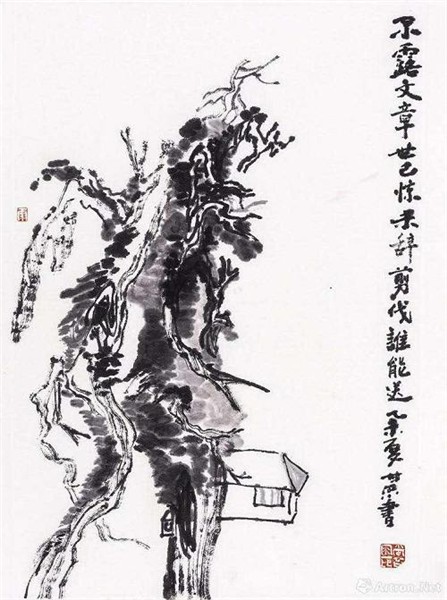 不露文章世已惊未辞剪伐誰能送乙未夏世書
Artron.Net